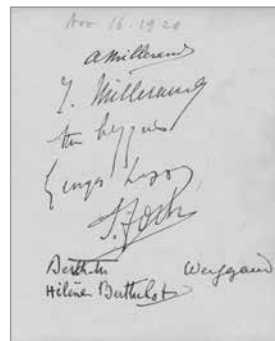 Nov 16. 1920
A Millerand
J. Millerand
Georges Leygues
F. Foch
Berthelot Weygand
Hélène Berthelot